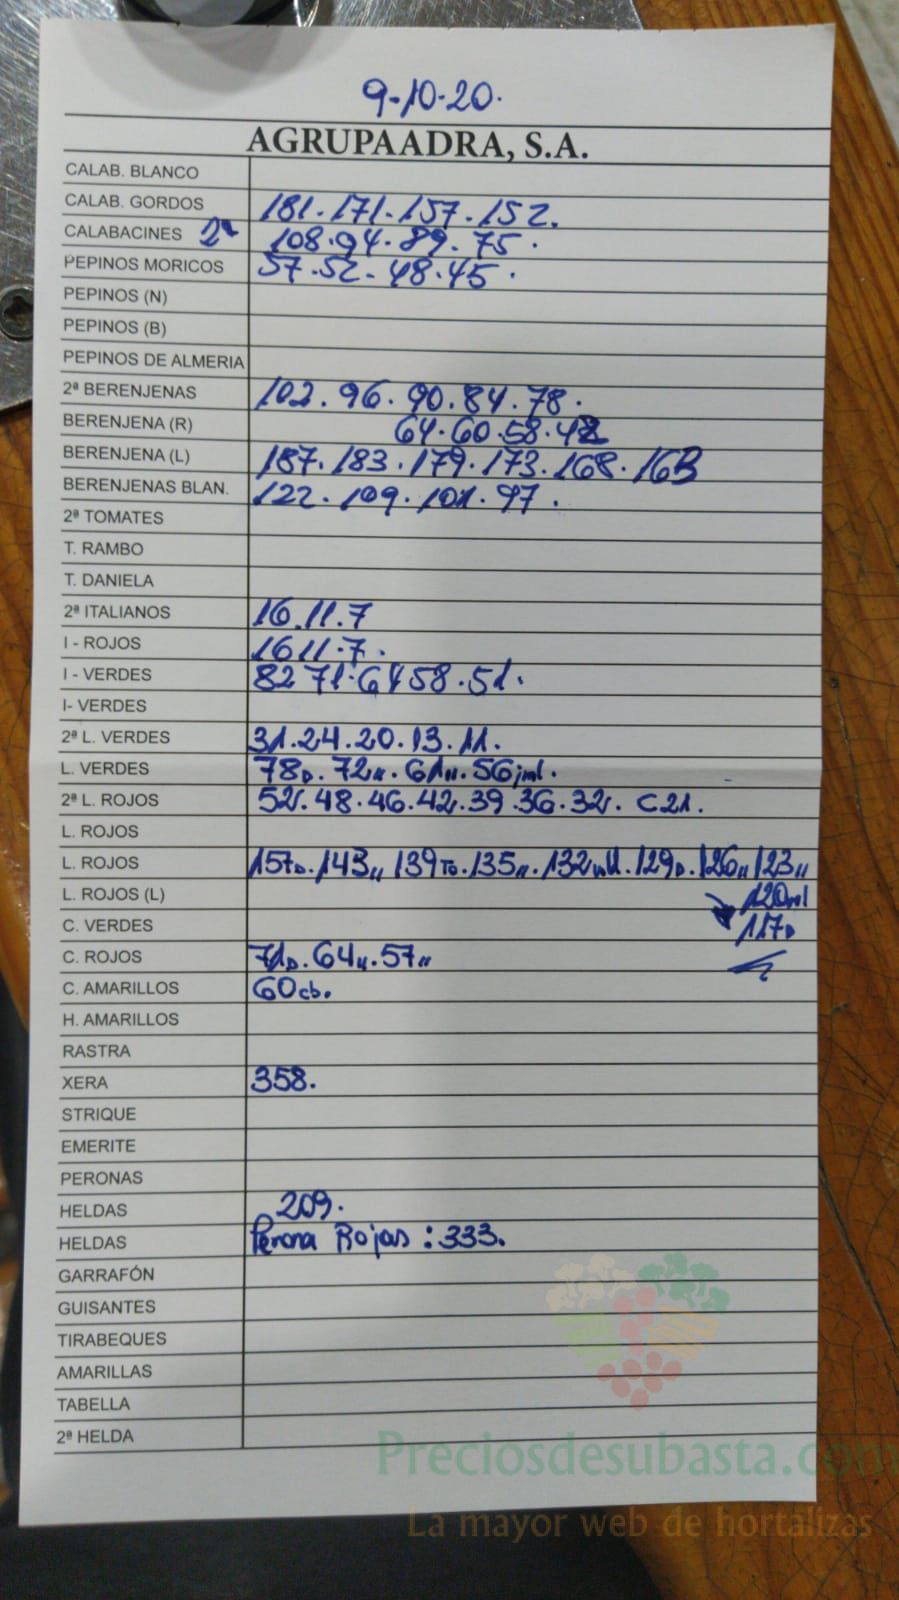 9-10-20.
AGRUPAADRA, S.A.
CALAB. BLANCO
CALAB. GORDOS 181.171.157.152.
CALABACINES 2ª 108.94.89.75.
PEPINOS MORICOS 57.52.48.45.
PEPINOS (N)
PEPINOS (B)
PEPINOS DE ALMERIA
2ª BERENJENAS 102.96.90.84.78.
BERENJENA (R) 64.60.58.42
BERENJENA (L) 187.183.179.173.168.163
BERENJENAS BLAN. 122.109.101.97.
2ª TOMATES
T. RAMBO
T. DANIELA
2ª ITALIANOS 16.11.7
I - ROJOS 16 11.7.
I - VERDES 82 71.64 58.51.
I- VERDES
2ª L. VERDES 31.24.20.13.11.
L. VERDES 78D. 72". 61". 56jml.
2ª L. ROJOS 52.48.46.42.39.36.32. C21.
L. ROJOS
L. ROJOS 157D. 143" 139TO. 135". 132 129D. 126" 123"
120ml
L. ROJOS (L)
117D
C. VERDES
C. ROJOS 71D. 64". 57"
C. AMARILLOS 60cb.
H. AMARILLOS
RASTRA
XERA 358.
STRIQUE
EMERITE
PERONAS
HELDAS 209.
HELDAS Perona Rojas : 333.
GARRAFÓN
GUISANTES
TIRABEQUES
AMARILLAS
TABELLA
2ª HELDA
Preciosdesubasta.com
La mayor web de hortalizas